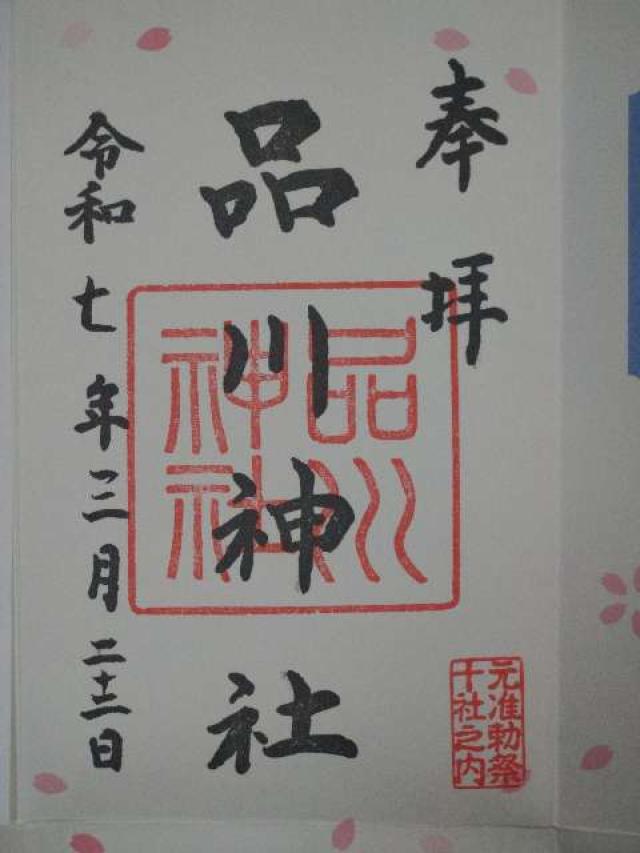 奉拝
品川神社
令和七年三月二十二日
品川
神社
元准勅祭
十社之内